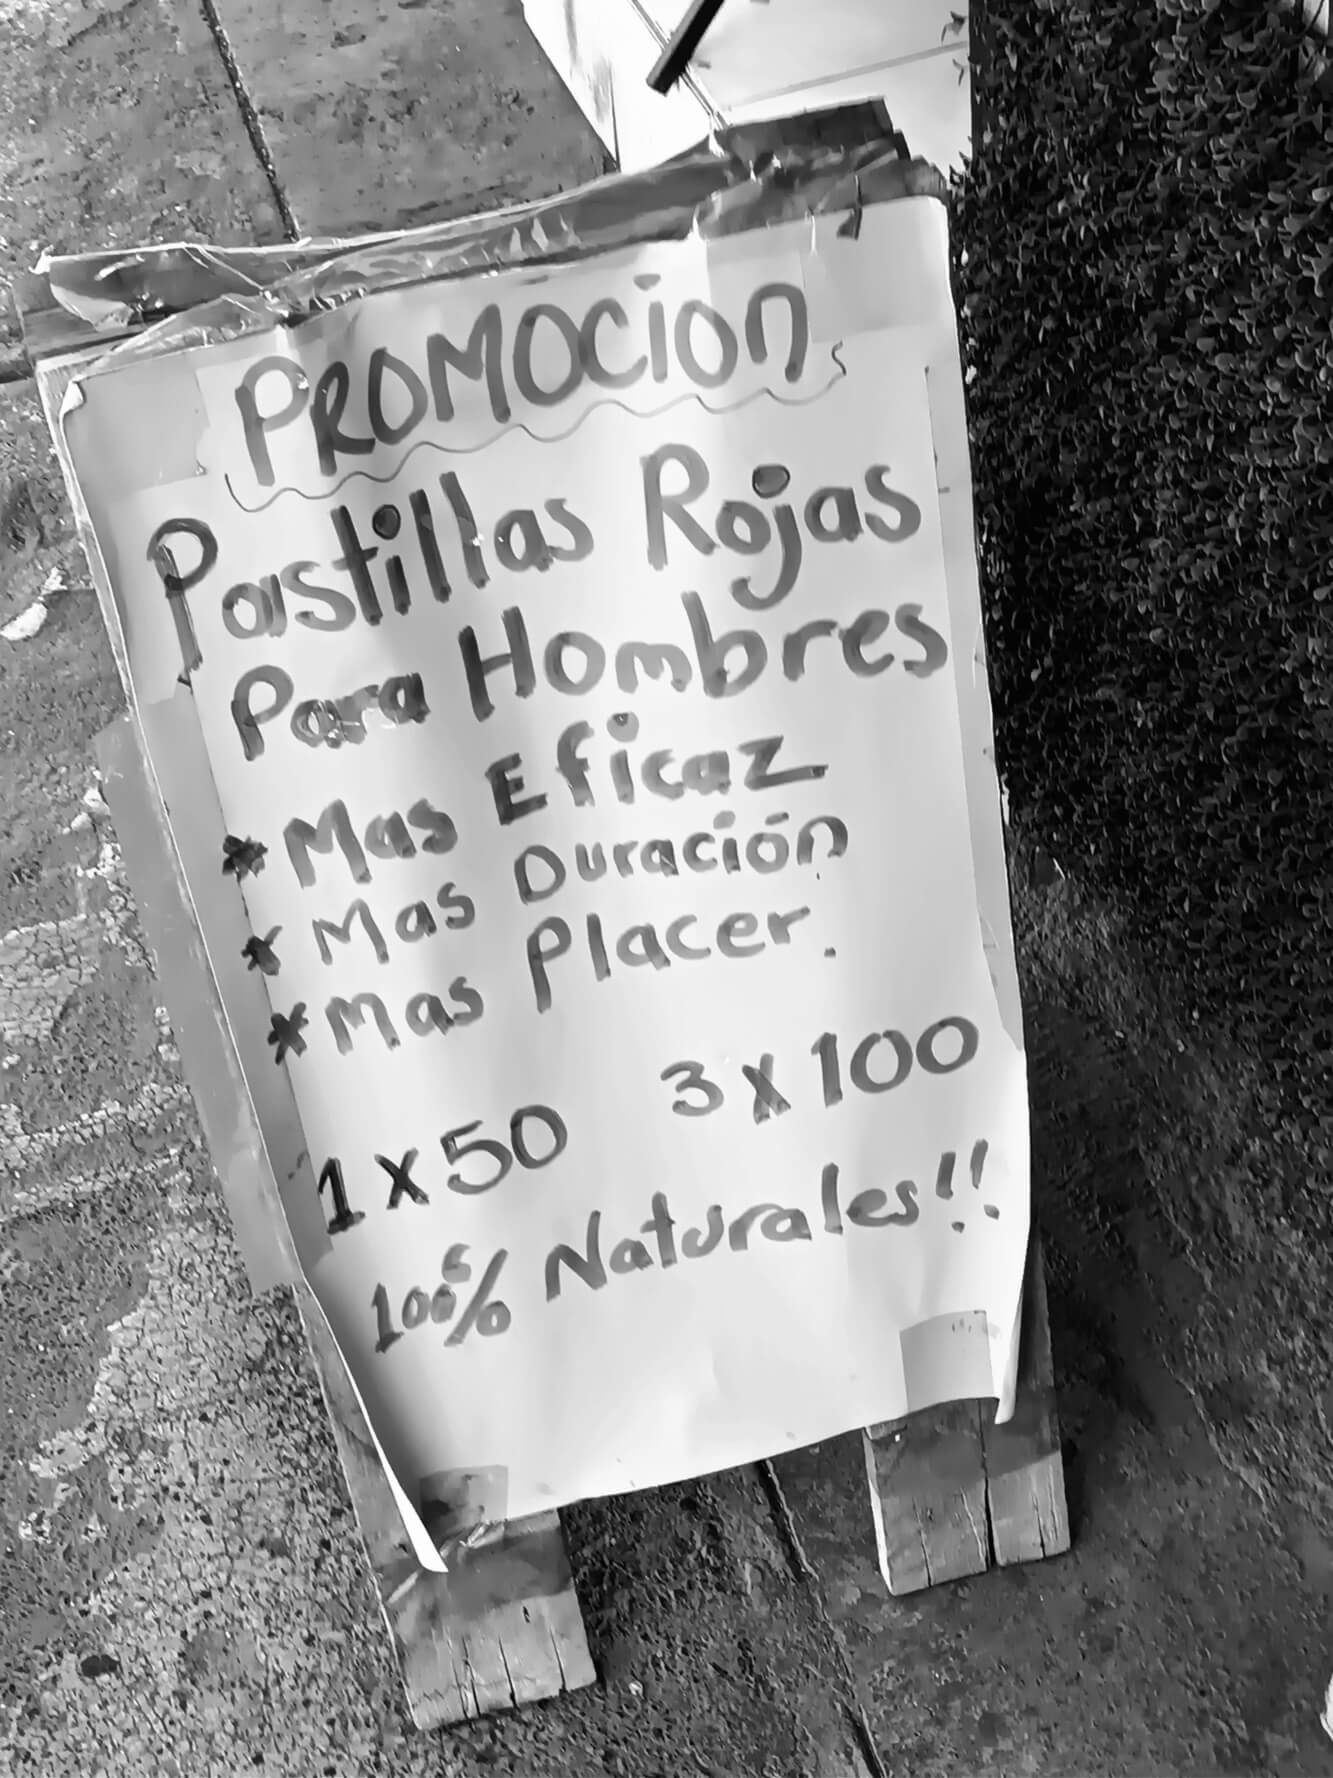 PROMOCION
Pastillas Rojas
Para Hombres
* Mas Eficaz
* Mas Duración
* Mas Placer.
1 x 50 3 x 100
100% Naturales!!